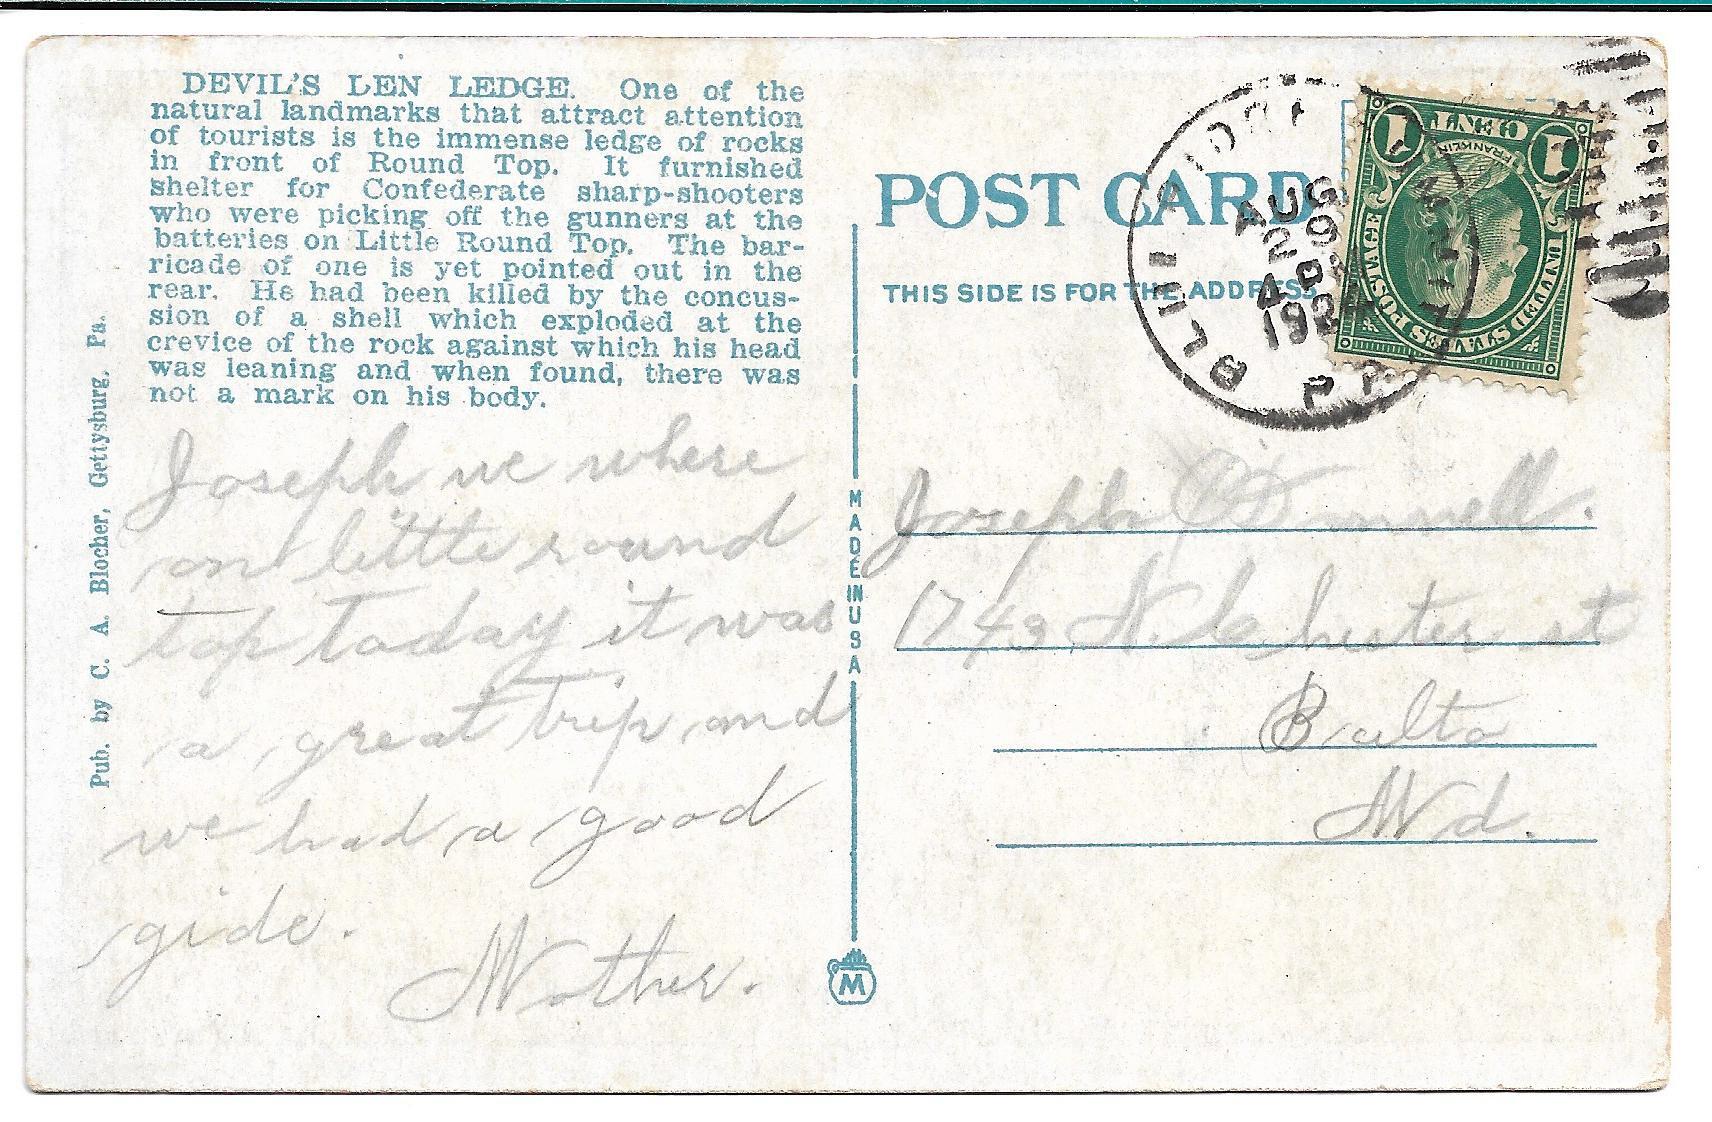 DEVIL'S DEN LEDGE. One of the
natural landmarks that attract attention
of tourists is the immense ledge of rocks
in front of Round Top. It furnished
shelter for Confederate sharp-shooters
who were picking off the gunners at the
batteries on Little Round Top. The bar-
ricade of one is yet pointed out in the
rear. He had been killed by the concus-
sion of a shell which exploded at the
crevice of the rock against which his head
was leaning and when found, there was
not a mark on his body.
Pub. by C. A. Blocher, Gettysburg, Pa.
Joseph we where
on little round
top today it was
a great trip and
we had a good
gide.
Mother.
MADE IN USA
M
POST CARD
THIS SIDE IS FOR THE ADDRESS
BLUE RIDGE SUMMIT
AUG
29
4 PM
192
PA
UNITED STATES POSTAGE
FRANKLIN
1 CENT 1
Joseph
N. Chester st
Balto
Md.